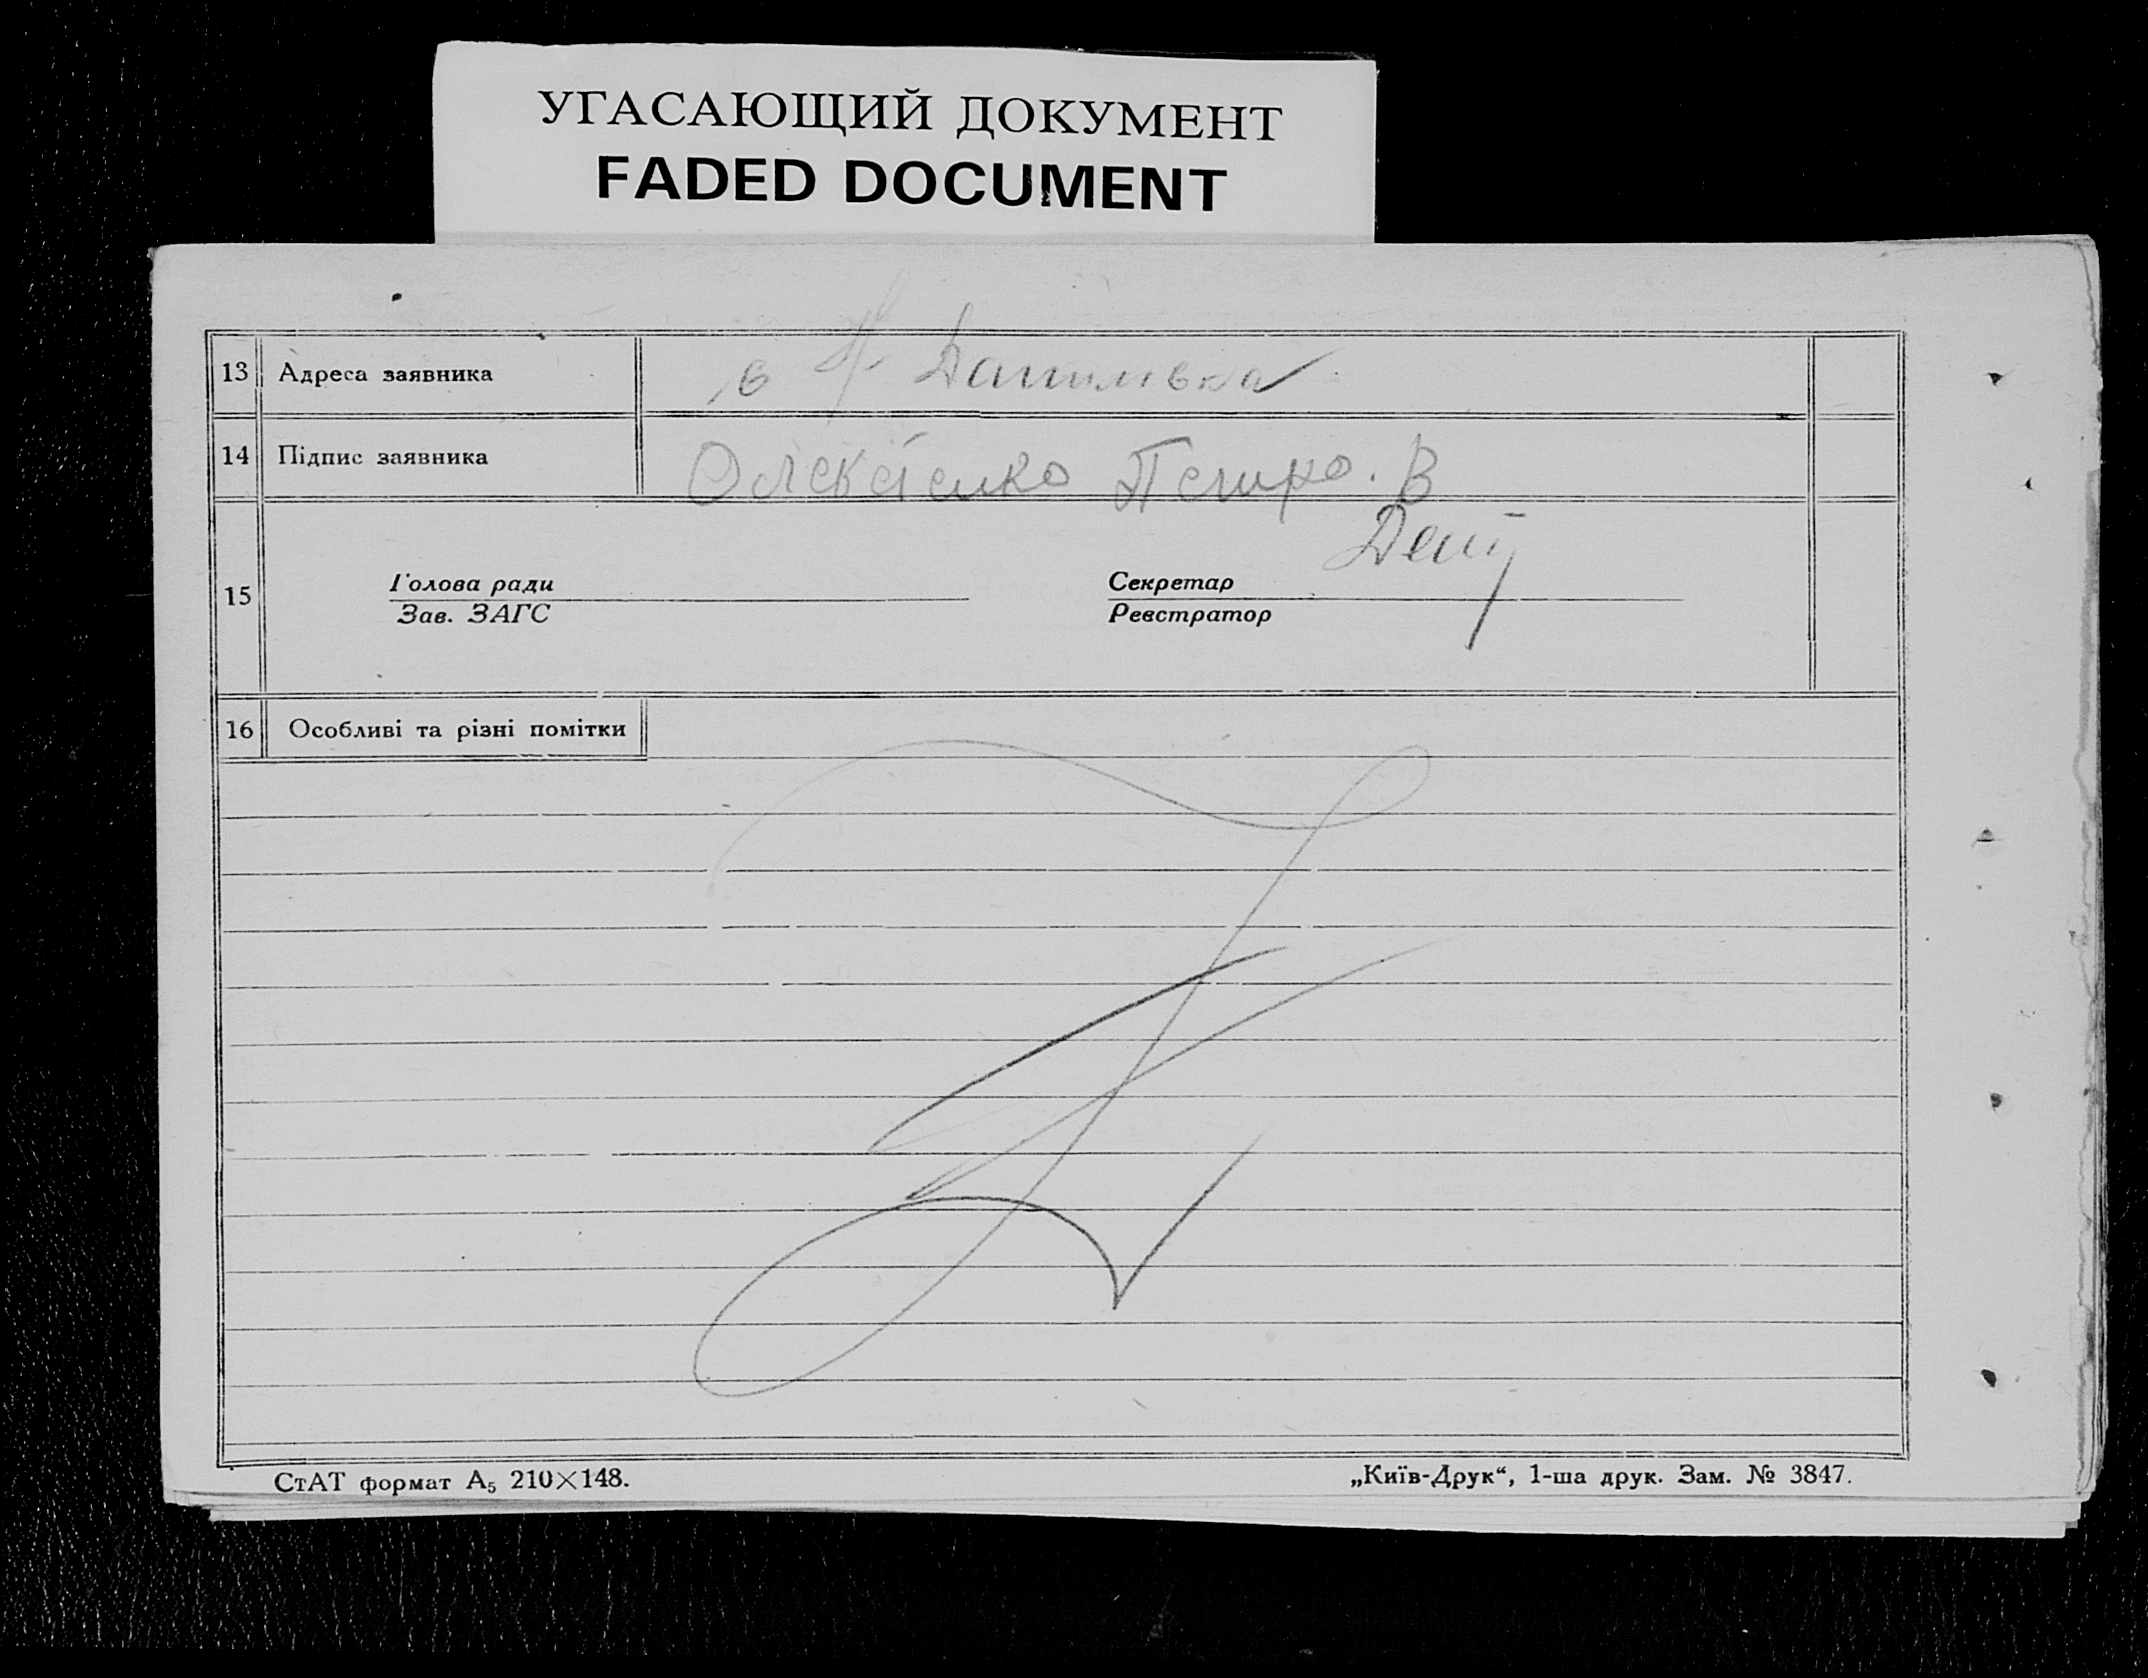 УГАСАЮЩИЙ ДОКУМЕНТ
FADED DOCUMENT
13 Адреса заявника
14 Підпис заявника Петро. В
15
Голова ради
Зав. ЗАГС
Секретар
Реєстратор
16 Особливі та різні помітки
СтАТ формат А5 210×148.
„Київ-Друк“, 1-ша друк. Зам. № 3847.